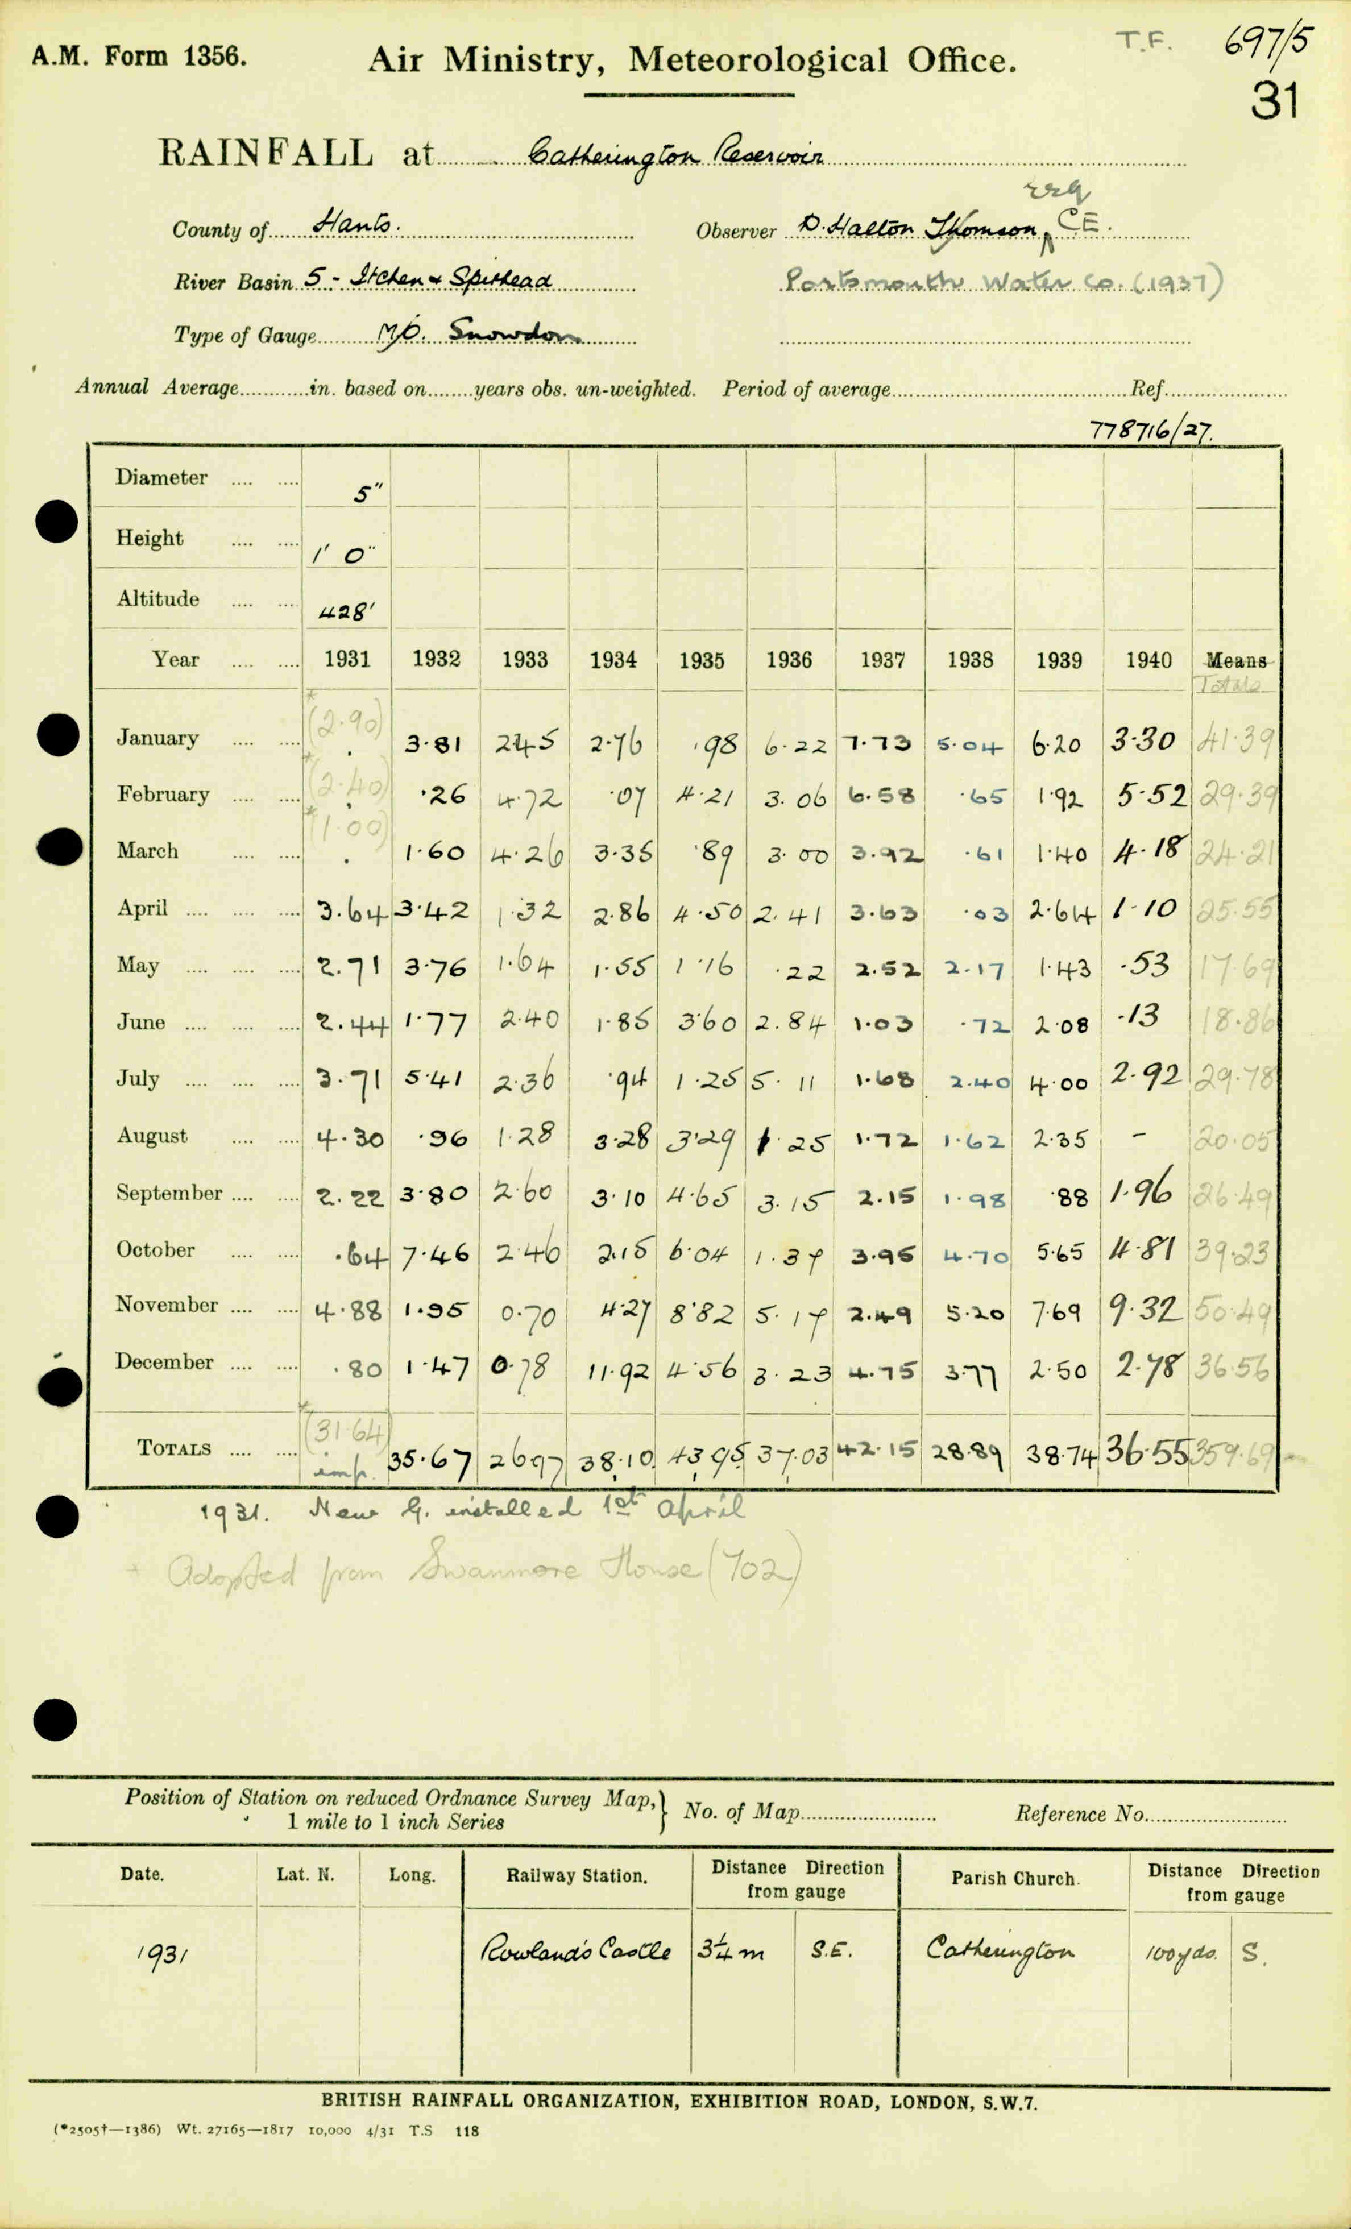 T.F. 697/5
A.M. Form 1356. Air Ministry, Meteorological Office.
31
RAINFALL at Catherington Reservoir
County of Hants. Observer D. Halton Thomson, Esq CE.
River Basin 5 - Itchen & Spithead Portsmouth Water Co. (1937)
Type of Gauge M.O. Snowdon
Annual Average in. based on years obs. un-weighted. Period of average Ref.
778716/27.
Diameter 5"
Height 1' 0"
Altitude 428'
Year 1931 1932 1933 1934 1935 1936 1937 1938 1939 1940 Means
Totals
January *(2.90) 3.81 2.45 2.76 .98 6.22 7.73 5.04 6.20 3.30 41.39
February *(2.40) .26 4.72 .07 4.21 3.06 6.58 .65 1.92 5.52 29.39
March *(1.00) 1.60 4.26 3.35 .89 3.00 3.92 .61 1.40 4.18 24.21
April 3.64 3.42 1.32 2.86 4.50 2.41 3.63 .03 2.64 1.10 25.55
May 2.71 3.76 1.64 1.55 1.16 .22 2.52 2.17 1.43 .53 17.69
June 2.44 1.77 2.40 1.85 3.60 2.84 1.03 .72 2.08 .13 18.86
July 3.71 5.41 2.36 .94 1.25 5.11 1.68 2.40 4.00 2.92 29.78
August 4.30 .96 1.28 3.28 3.29 1.25 1.72 1.62 2.35 - 20.05
September 2.22 3.80 2.60 3.10 4.65 3.15 2.15 1.98 .88 1.96 26.49
October .64 7.46 2.46 2.15 6.04 1.37 3.95 4.70 5.65 4.81 39.23
November 4.88 1.95 0.70 4.27 8.82 5.17 2.49 5.20 7.69 9.32 50.49
December .80 1.47 0.78 11.92 4.56 3.23 4.75 3.77 2.50 2.78 36.56
TOTALS *(31.64) imp. 35.67 26.97 38.10 43.95 37.03 42.15 28.89 38.74 36.55 359.69
1931. New G. installed 1st April
* Adopted from Swanmore House (702)
Position of Station on reduced Ordnance Survey Map, } No. of Map Reference No.
1 mile to 1 inch Series
Date. Lat. N. Long. Railway Station. Distance Direction Parish Church. Distance Direction
from gauge from gauge
1931 Rowland's Castle 3¼ m S.E. Catherington 100 yds. S.
BRITISH RAINFALL ORGANIZATION, EXHIBITION ROAD, LONDON, S.W.7.
(*2505†—1386) Wt. 27165—1817 10,000 4/31 T.S 118